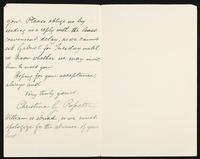 you. Please oblige us by
sending us a reply with the least
convenient delay, as we cannot
ask Gabriel for Tuesday until
we know whether we may invite
him to meet you.
Hoping for your acceptance,
always and
Very truly yours
Christina G. Rossetti
William is abroad, so we must
apologize for the absence of your